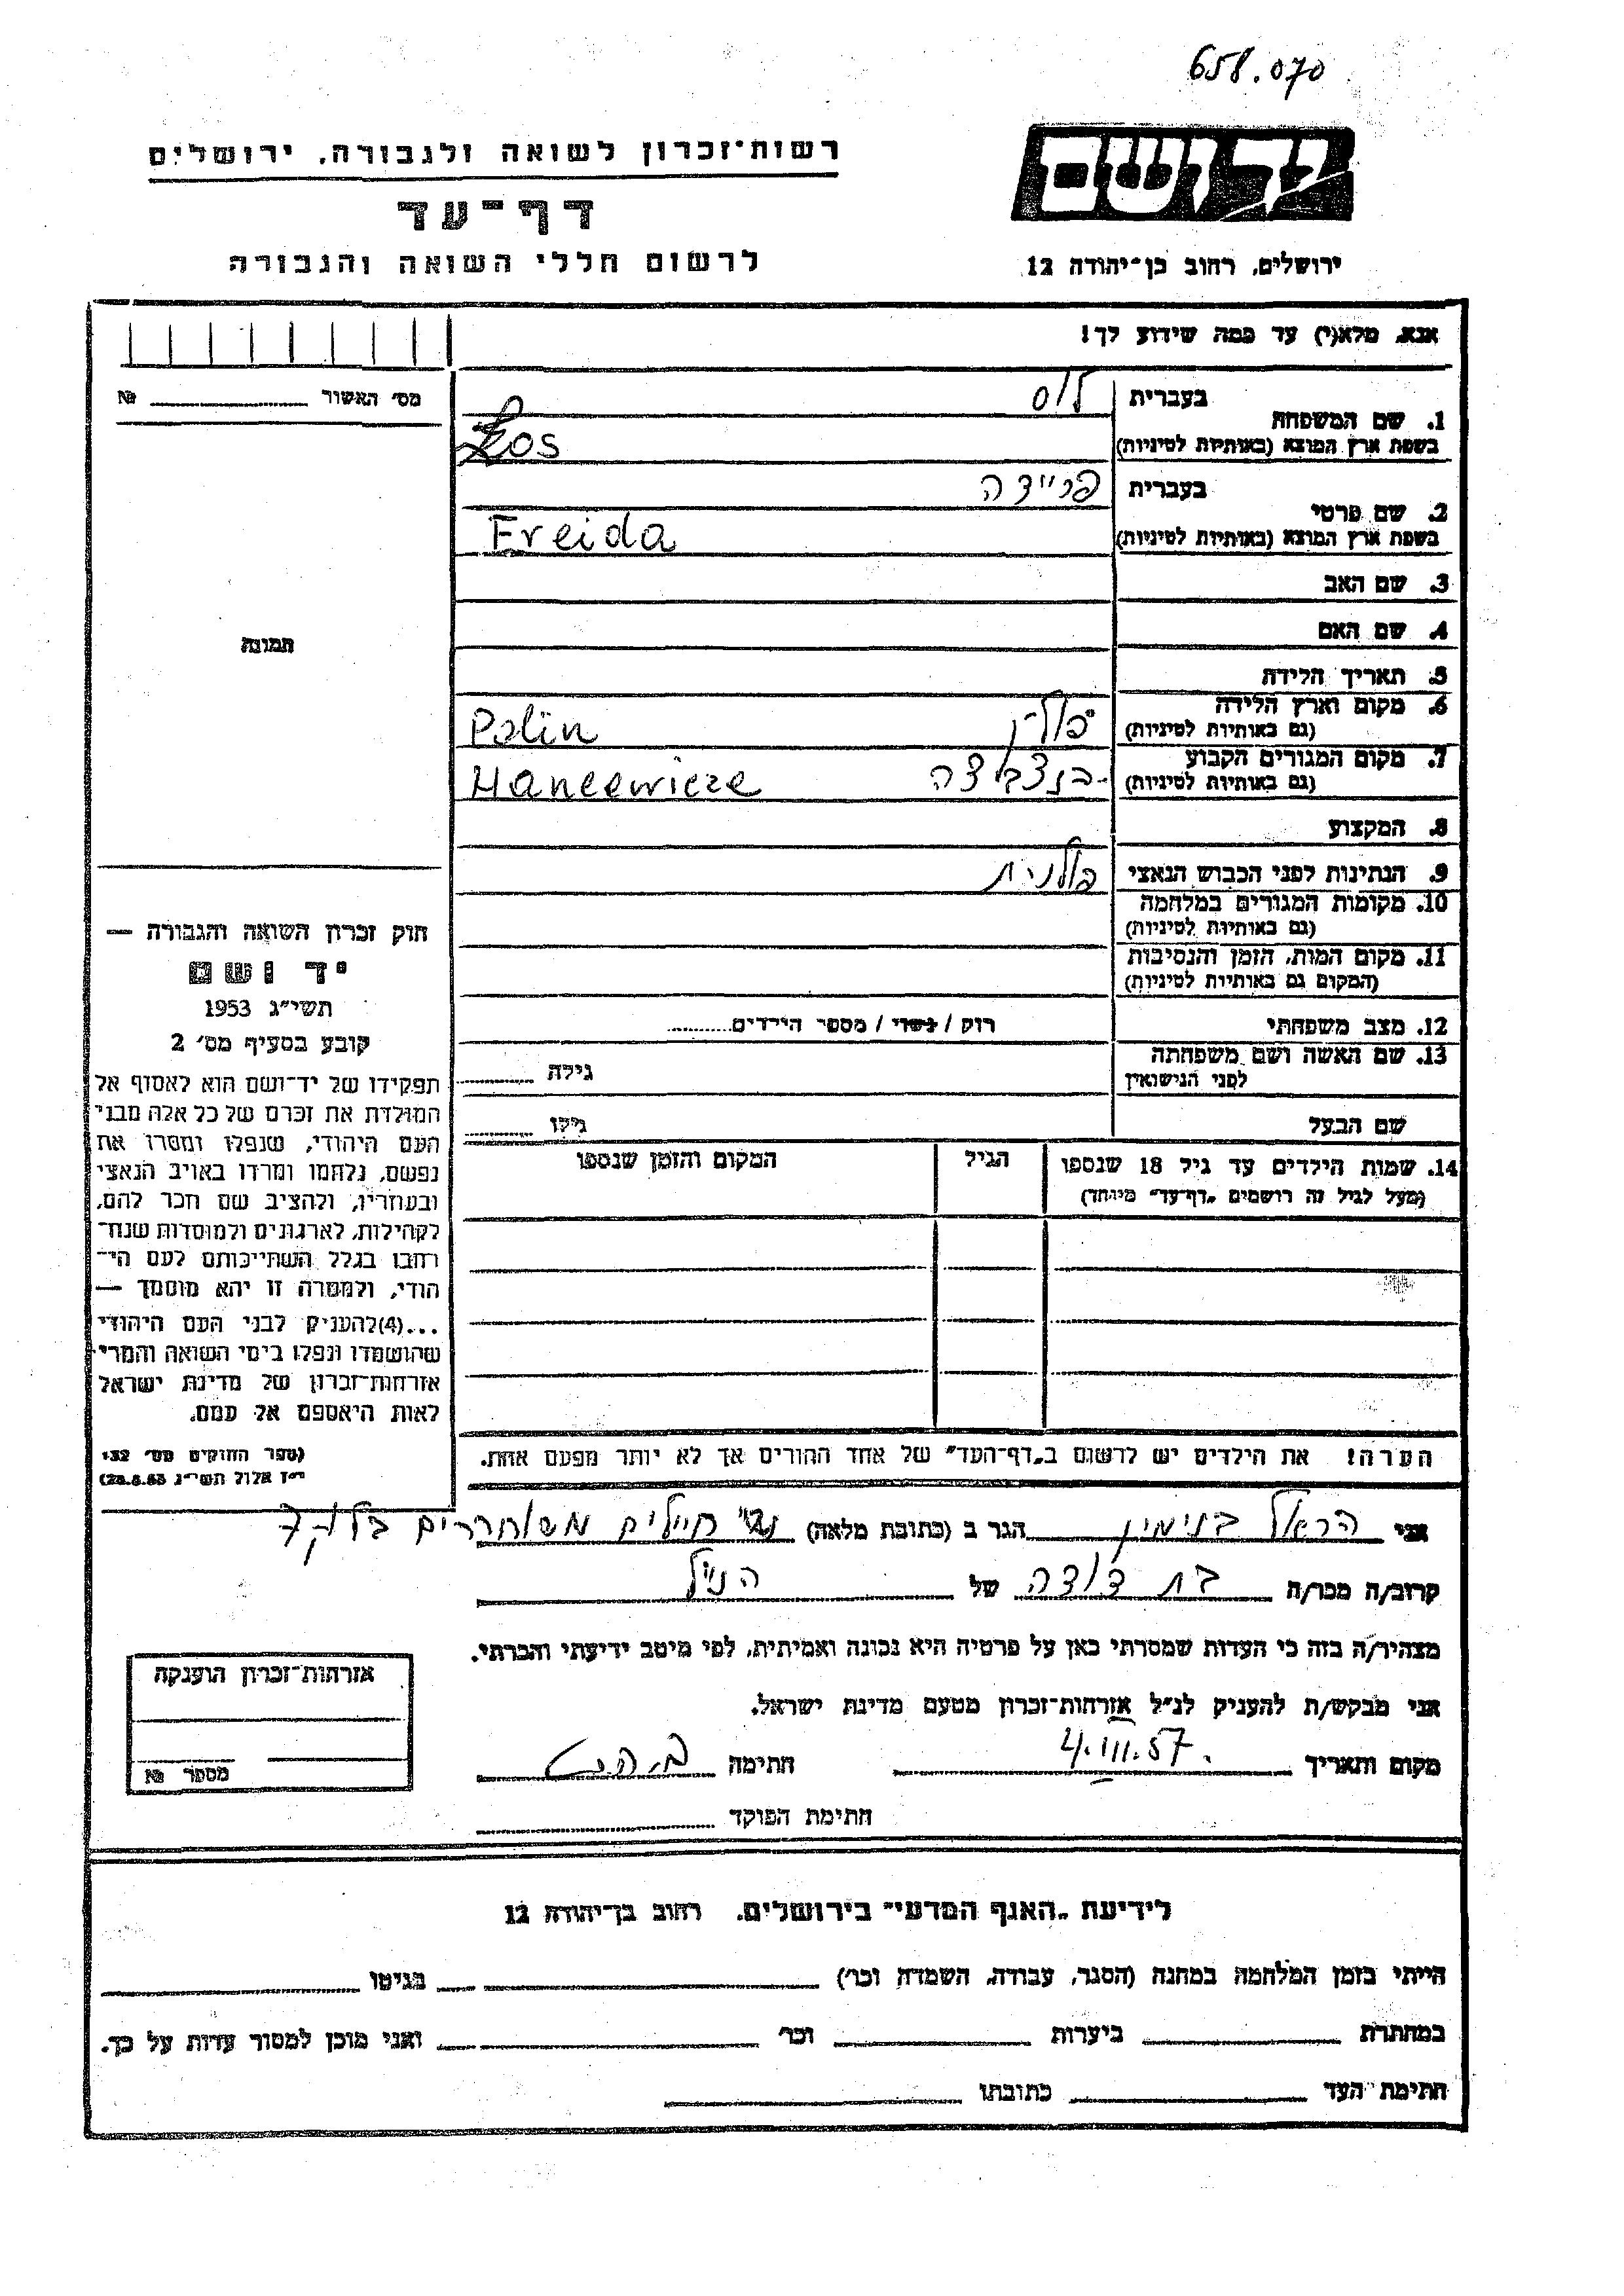 658.070
יד ושם
רשות־זכרון לשואה ולגבורה, ירושלים
דף־עד
לרשום חללי השואה והגבורה
ירושלים, רחוב בן־יהודה 12
אנא, מלא(י) עד כמה שידוע לך!
מס׳ האשור № 
1. שם המשפחה
בעברית לוס
בשפת ארץ המוצא (באותיות לטיניות) Los
2. שם פרטי
בעברית פריידה
בשפת ארץ המוצא (באותיות לטיניות) Freida
3. שם האב
4. שם האם
5. תאריך הלידה
6. מקום וארץ הלידה
(גם באותיות לטיניות) פולין Polin
7. מקום המגורים הקבוע
(גם באותיות לטיניות)
8. המקצוע
9. הנתינות לפני הכבוש הנאצי פולנית
10. מקומות המגורים במלחמה
(גם באותיות לטיניות)
11. מקום המות, הזמן והנסיבות
(המקום גם באותיות לטיניות)
12. מצב משפחתי רוק / נשוי / מספר הילדים
13. שם האשה ושם משפחתה
לפני הנישואין
גילה
שם הבעל
גילו
14. שמות הילדים עד גיל 18 שנספו
(מעל לגיל זה רושמים „דף־עד״ מיוחד)
הגיל
המקום והזמן שנספו
הערה! את הילדים יש לרשום ב„דף־העד״ של אחד ההורים אך לא יותר מפעם אחת.
תמונה
חוק זכרון השואה והגבורה —
יד ושם
תשי״ג 1953
קובע בסעיף מס׳ 2
תפקידו של יד־ושם הוא לאסוף אל
המולדת את זכרם של כל אלה מבני
העם היהודי, שנפלו ומסרו את
נפשם, נלחמו ומרדו באויב הנאצי
ובעוזריו, ולהציב שם וזכר להם,
לקהילות, לארגונים ולמוסדות שנח־
רבו בגלל השתייכותם לעם הי־
הודי, ולמטרה זו יהא מוסמך —
...(4)להעניק לבני העם היהודי
שהושמדו ונפלו בימי השואה והמרי
אזרחות־זכרון של מדינת ישראל
לאות היאספם אל עמם.
(ספר החוקים מס׳ 132,
י״ז אלול תשי״ג 28.8.53)
אני הראל בנימין הגר ב (כתובת מלאה) חיילים משוחררים
קרוב/ה מכר/ה בת דודה של הנ״ל
מצהיר/ה בזה כי העדות שמסרתי כאן על פרטיה היא נכונה ואמיתית, לפי מיטב ידיעתי והכרתי.
אני מבקש/ת להעניק לנ״ל אזרחות־זכרון מטעם מדינת ישראל.
מקום ותאריך 4.III.57. חתימה
חתימת הפוקד
אזרחות־זכרון הוענקה
מספר №
לידיעת „האגף המדעי״ בירושלים, רחוב בן־יהודה 12
הייתי בזמן המלחמה במחנה (הסגר, עבודה, השמדה וכר׳) בגיטו
במחתרת ביערות וכר׳ ואני מוכן למסור עדות על כך.
חתימת העד כתובתו